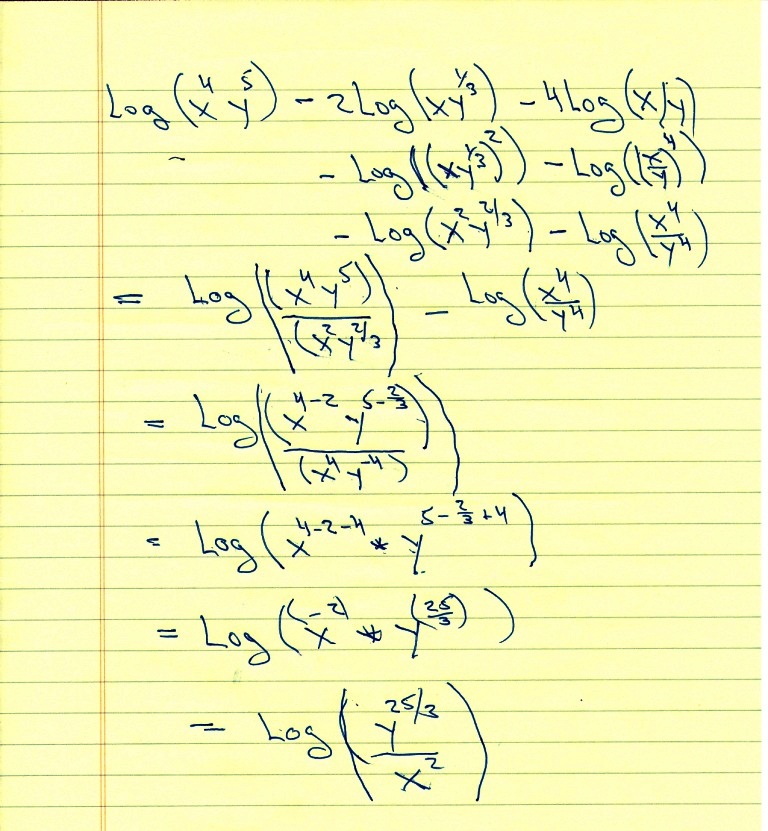 Log(x^4 y^5) - 2Log(xy^(1/3)) - 4Log(x/y)
- Log((xy^(1/3))^2) - Log((x/y)^4)
- Log(x^2 y^(2/3)) - Log(x^4/y^4)
= Log((x^4 y^5)/(x^2 y^(2/3)) - Log(x^4/y^4)
= Log((x^(4-2) y^(5-2/3))/(x^4 y^(-4)))
= Log(x^(4-2-4) * y^(5-2/3+4))
= Log(x^(-2) * y^(25/3))
= Log(y^(25/3)/x^2)